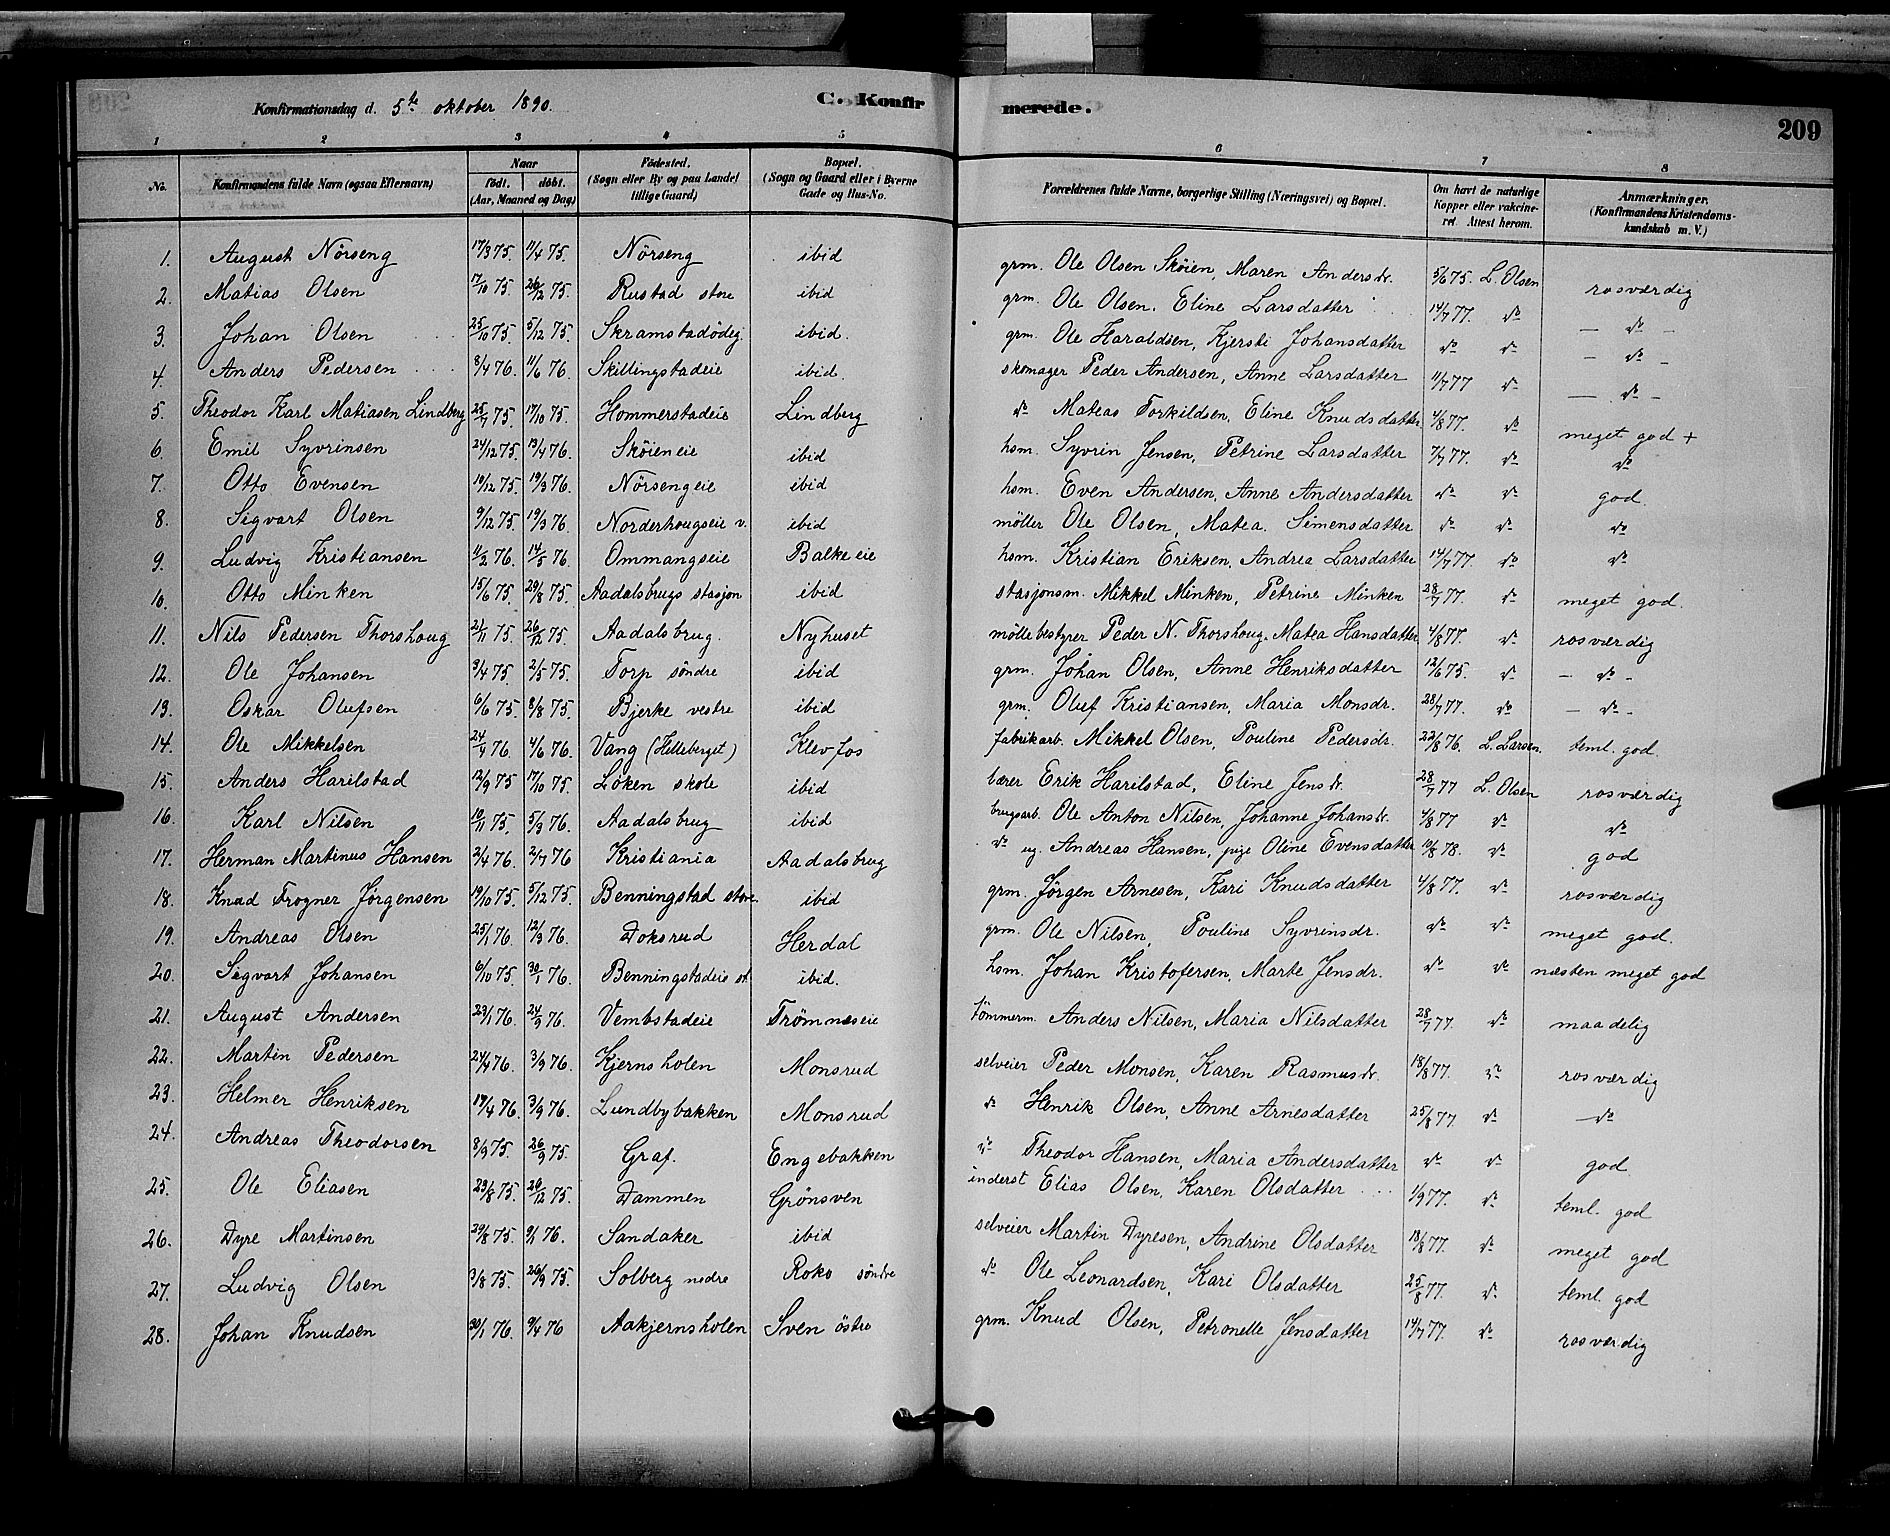 Konfirmationsdag d. 5te oktober 1890. C. Konfirmerede. 209
1 2 3 4 5 6 7 8
No. Konfirmandens fulde Navn (ogsaa Efternavn) Naar født. døbt. (Aar, Maaned og Dag) Fødested. (Sogn eller By og paa Landet tillige Gaard) Bopæl. (Sogn og Gaard eller i Byerne Gade og Hus-No. Forældrenes fulde Navne, borgerlige Stilling (Næringsvei) og Bopæl. Om havt de naturlige Kopper eller vakcineret. Attest herom. Anmærkninger. (Konfirmandens Kristendomskundskab m. V.)
1. August Nörseng 17/3 75. 11/4 75. Nörseng ibid grm. Ole Olsen Sköien, Maren Andersdr. 5/6 75. L. Olsen rosværdig
2. Matias Olsen 17/10 75. 26/12 75. Rustad store ibid grm. Ole Olsen. Eline Larsdatter 14/7 77. do — do —
3. Johan Olsen 25/10 75. 5/12 75. Skramstadödeg. ibid. grm. Ole Haraldsen, Kjersti Johansdatter do do — do —
4. Anders Pedersen 8/4 76. 11/6 76. Skillingstadeie ibid. skomager Peder Andersen, Anne Larsdatter 11/7 77 do — do —
5. Theodor Karl Matiasen Lindberg 25/7 75. 17/10 75. Hommerstadeie Lindberg do Mateas Torkildsen, Eline Knudsdatter 4/8 77. do meget god +
6. Emil Syvrinsen 24/12 75. 17/4 76. Sköieneie ibid hsm. Syvrin Jensen, Petrine Larsdatter 7/7 77. do do
7. Otto Evensen 10/12 75. 19/3 76. Nörsengeie ibid hsm. Even Andersen, Anne Andersdatter do do god.
8. Sigvart Olsen 9/12 75. 19/3 76. Norderhougseie v. ibid möller Ole Olsen, Matea. Simensdatter do do do
9. Ludvig Kristiansen 11/2 76. 14/5 76. Ommangseie Balke eie hsm. Kristian Eriksen, Andrea Larsdatter 14/7 77. do do
10. Otto Minken 15/6 75. 29/8 75. Aadalsbrugs stasjon ibid stasjonsm. Mikkel Minken, Petrine Minken 28/7 77. do meget god.
11. Nils Pedersen Thorshoug 21/11 75. 26/12 75. Aadalsbrug. Nyhuset möllebestyrer Peder N. Thorshoug. Matea Hansdatter 4/8 77. do rosværdig
12. Ole Johansen 3/4 75. 2/5 75. Torp söndre ibid grm. Johan Olsen, Anne Henriksdatter 12/6 75. do — do —
13. Oskar Olufsen 6/6 75. 8/8 75. Bjerke vestre ibid grm. Oluf Kristiansen, Maria Monsdr. 28/7 77. do — do —
14. Ole Mikkelsen 24/4 76. 4/6 76. Vang (Helleberget) Klevfos fabrikarb. Mikkel Olsen, Pouline Pedersdr. 22/8 76. L. Larsen. teml. god.
15. Anders Harilstad 12/9 75 17/10 75. Löken skole ibid lærer Erik Harilstad, Eline Jensdr. 28/7 77 L. Olsen rosværdig
16. Karl Nilsen 10/11 75. 5/3 76. Aadalsbrug ibid brugsarb. Ole Anton Nilsen, Johanne Johansdr. 4/8 77 do do
17. Herman Martinus Hansen 2/4 76. 2/7 76 Kristiania Aadalsbrug do ug. Andreas Hansen, pige Oline Evensdatter 10/8 78. do god
18. Knud Frogner Jörgensen 19/10 75. 5/12 75. Benningstad store. ibid grm. Jörgen Arnesen, Kari Knudsdatter 4/8 77. do rosværdig
19. Andreas Olsen 25/1 76. 12/3 76. Doksrud Herdal grm. Ole Nilsen, Pouline Syvrinsdr. do do meget god.
20. Segvart Johansen 6/10 75. 30/1 76. Benningstadeie st. ibid. hsm. Johan Kristofersen, Marte Jensdr. do do næsten meget god
21. August Andersen 23/1 76. 24/9 76. Vembstadeie Trömnæseie tömmerm. Anders Nilsen, Maria Nilsdatter 28/7 77. do maadelig
22. Martin Pedersen 24/4 76. 3/9 76. Kjernsholen Monsrud selveier Peder Monsen, Karen Rasmusdr. 18/8 77. do rosværdig
23. Helmer Henriksen 19/4 76. 3/9 76. Lundbybakken Monsrud do Henrik Olsen, Anne Arnesdatter 25/8 77. do — do
24. Andreas Theodorsen 8/9 75. 26/9 75. Graf. Engebakken do Theodor Hansen, Maria Andersdatter do do god
25. Ole Eliasen 23/8 75. 26/12 75. Dammen Grönsven inderst Elias Olsen, Karen Olsdatter 1/9 77. do teml. god
26. Dyre Martinsen 29/8 75. 9/1 76. Sandaker ibid selveier Martin Dyresen, Andrine Olsdatter 18/8 77. do meget god
27. Ludvig Olsen 3/8 75. 26/9 75. Solberg nedre Roko söndre do Ole Leonardsen, Kari Olsdatter 25/8 77. do teml. god
28. Johan Knudsen 30/1 76. 9/4 76 Aakjernsholen Sven östre grm. Knud Olsen, Petronelle Jensdatter 14/7 77. do rosværdig